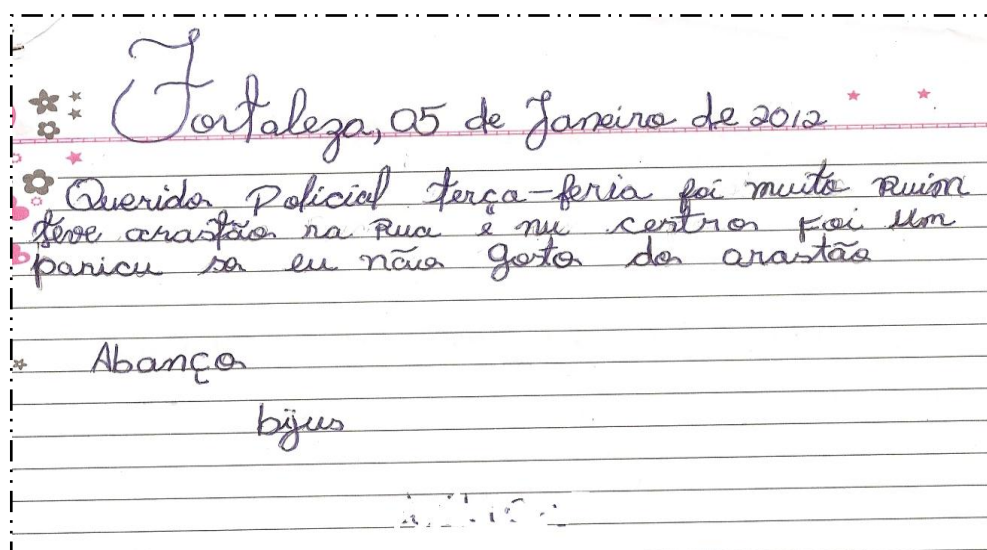 Fortaleza, 05 de Janeiro de 2012
Querido Policial terça-feria foi muito Ruim
teve arastão na Rua e nu centro Foi um
panicu so eu não gosto do arastão
Abanço
bijus